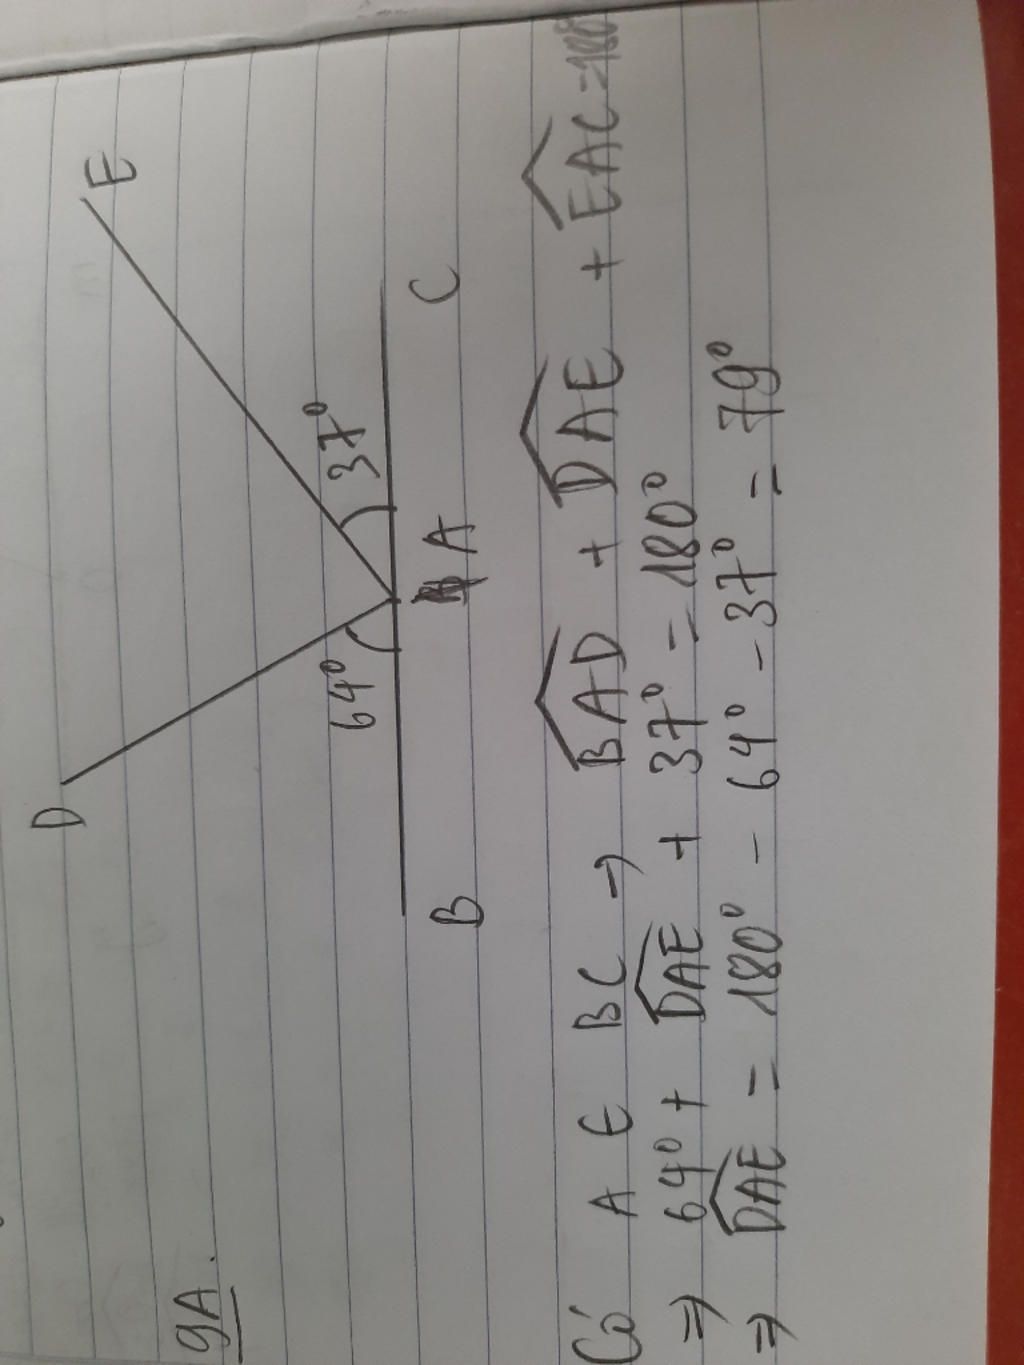 9A.
D
E
64°
37°
B
A
C
Có A ∈ BC → \widehat{BAD} + \widehat{DAE} + \widehat{EAC} = 180°
⇒ 64° + \widehat{DAE} + 37° = 180°
⇒ \widehat{DAE} = 180° - 64° - 37° = 79°